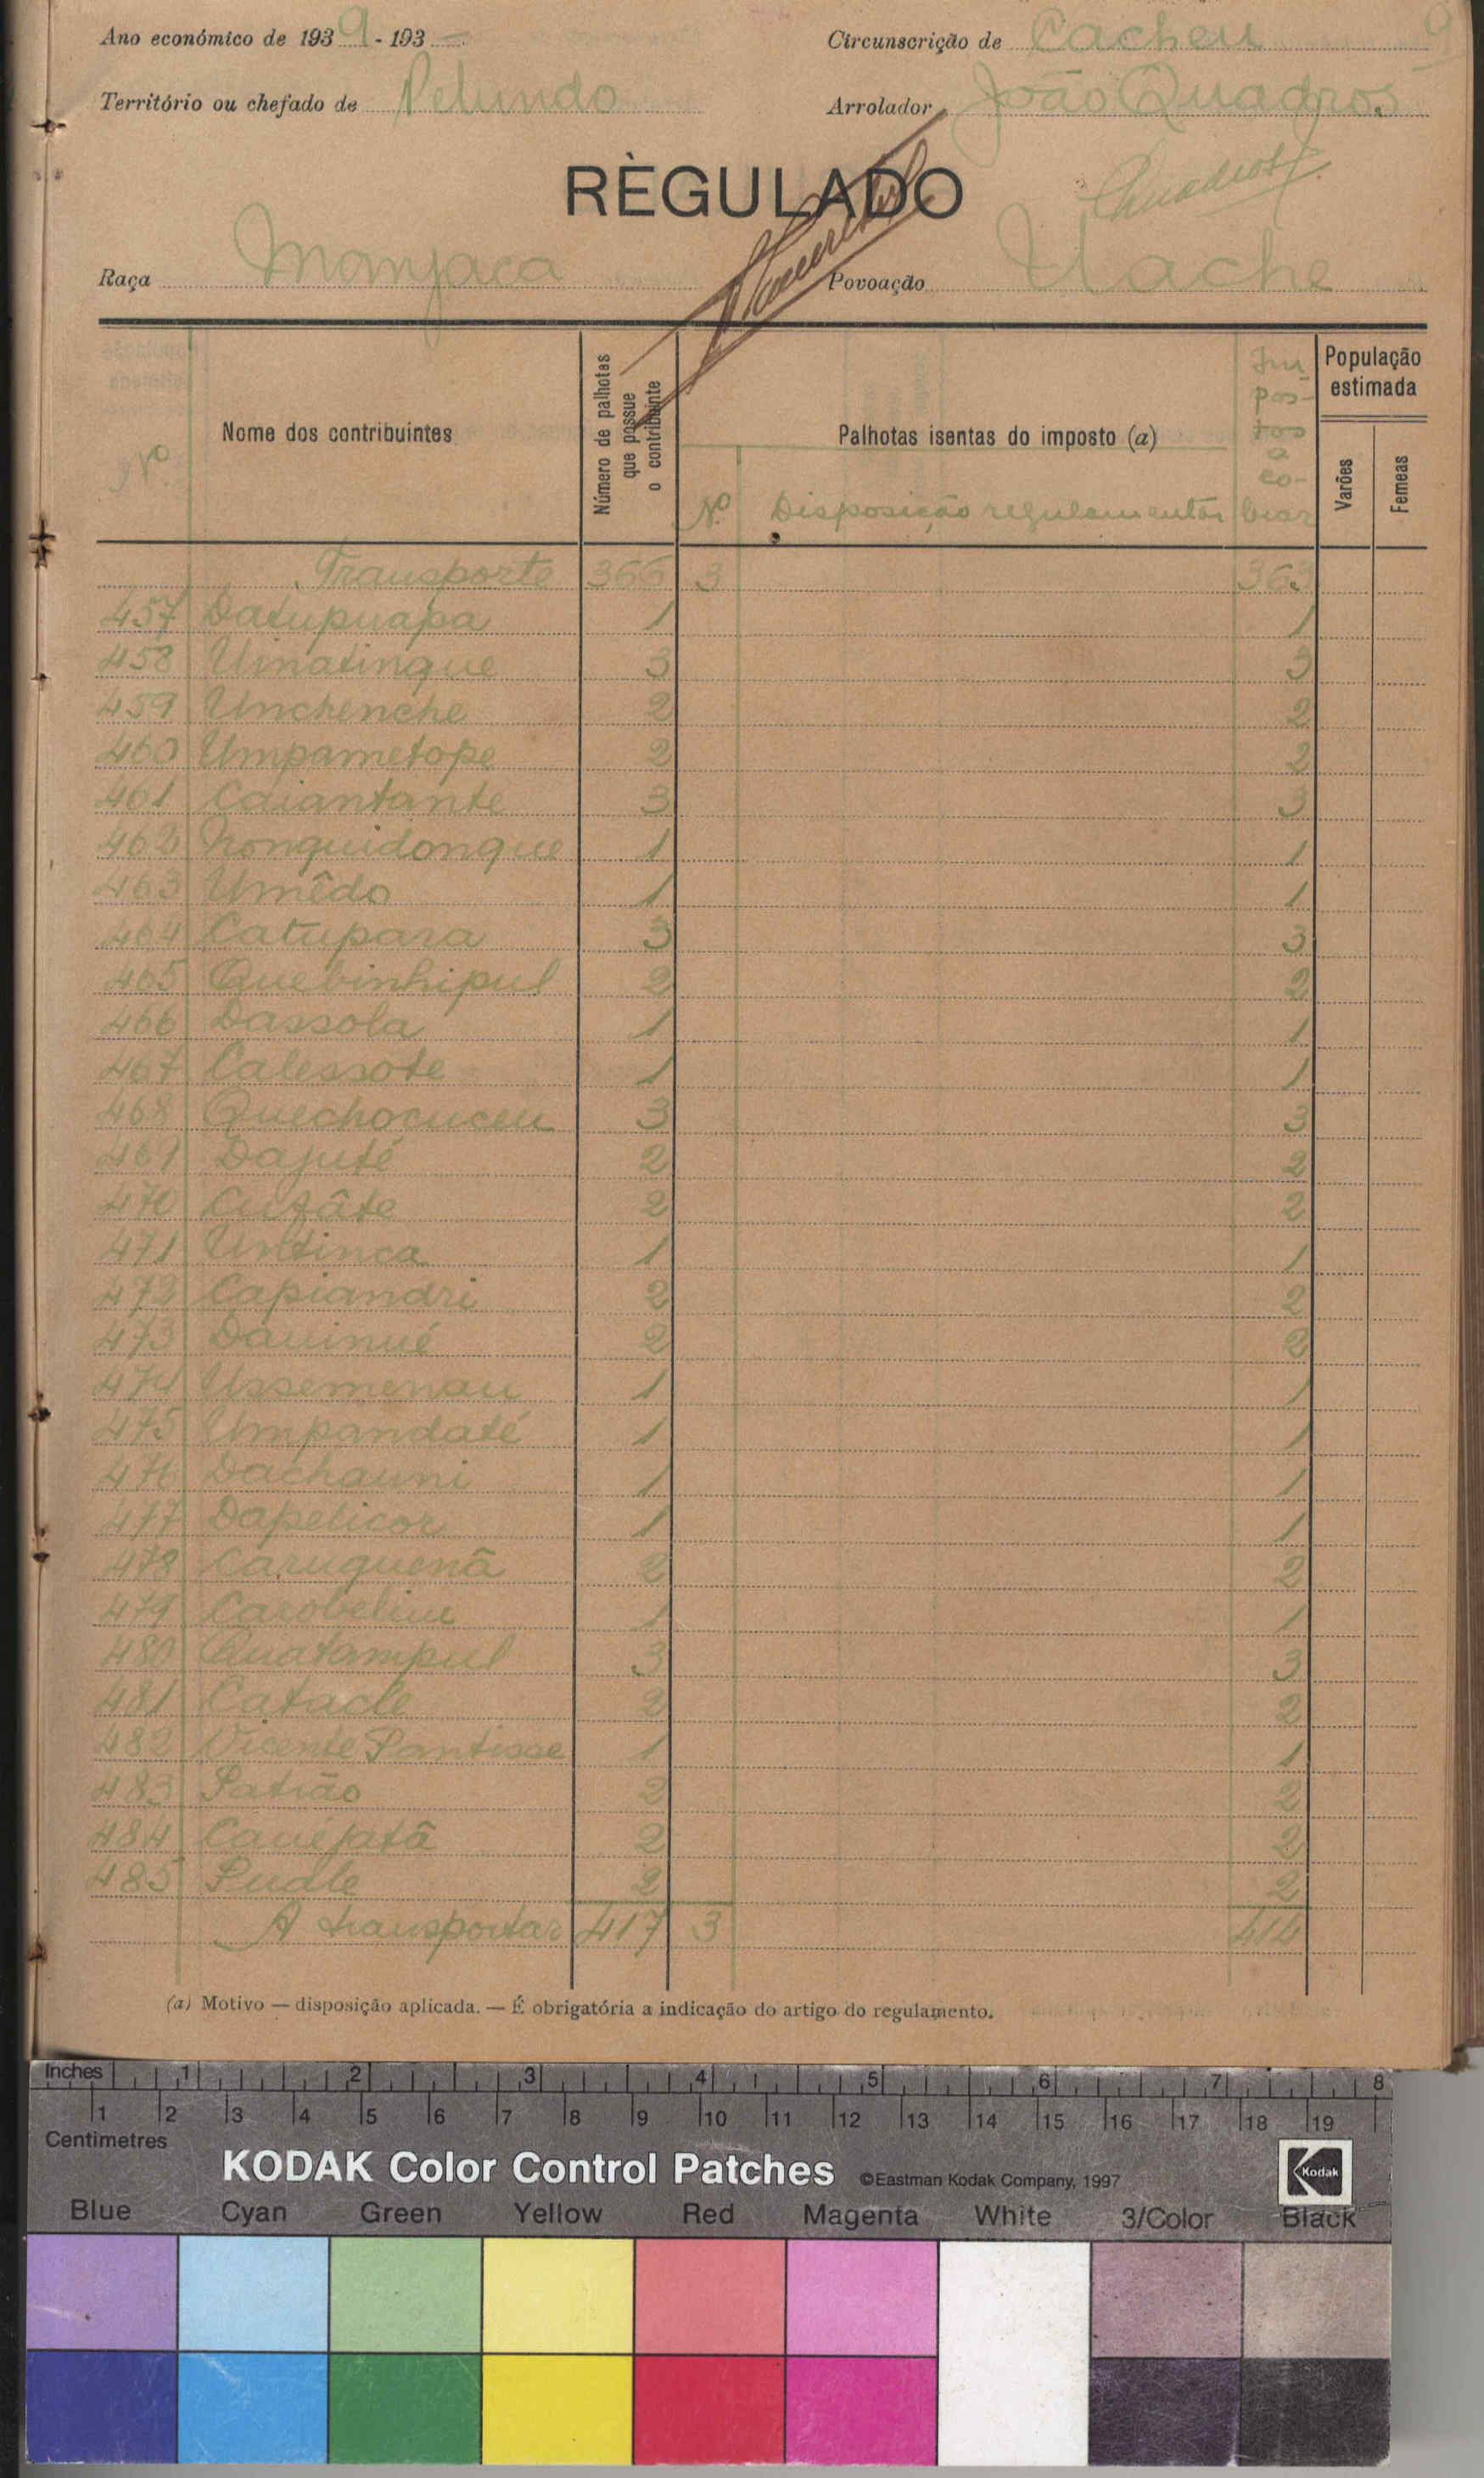 Ano económico de 1939 - 193 —
Circunscrição de Cacheu
Território ou chefado de Pelundo
Arrolador João Quadros
RÈGULADO
Quadros
Raça Manjaca
Povoação Uache
Nº
Nome dos contribuintes
Número de palhotas que possue o contribuinte
Palhotas isentas do imposto (a)
Nº
Disposição regulamentar
Im
pos-
tos
a
co-
brar
População estimada
Varões
Femeas
Transporte 366 3 363
457 Datupuapa 1 1
458 Uinatinque 3 3
459 Unchenche 2 2
460 Umpametope 2 2
461 Caiantante 3 3
462 Nonquidonque 1 1
463 Umêdo 1 1
464 Catupara 3 3
465 Quebinhipul 2 2
466 Dassola 1 1
467 Calessote 1 1
468 Quechocuceu 3 3
469 Dajuté 2 2
470 Cufâte 2 2
471 Untinca 1 1
472 Capiandri 2 2
473 Dauinué 2 2
474 Ussemenau 1 1
475 Umpandaté 1 1
476 Dachauni 1 1
477 Dapelicor 1 1
478 Caruquenã 2 2
479 Carobeline 1 1
480 Quatampul 3 3
481 Catacle 2 2
482 Vicente Pantisse 1 1
483 Patrão 2 2
484 Cauéjatã 2 2
485 Pudle 2 2
A transportar 417 3 414
(a) Motivo — disposição aplicada. — É obrigatória a indicação do artigo do regulamento.
Inches 1 2 3 4 5 6 7 8
1 2 3 4 5 6 7 8 9 10 11 12 13 14 15 16 17 18 19
Centimetres
KODAK Color Control Patches ©Eastman Kodak Company, 1997 Kodak
Blue Cyan Green Yellow Red Magenta White 3/Color Black